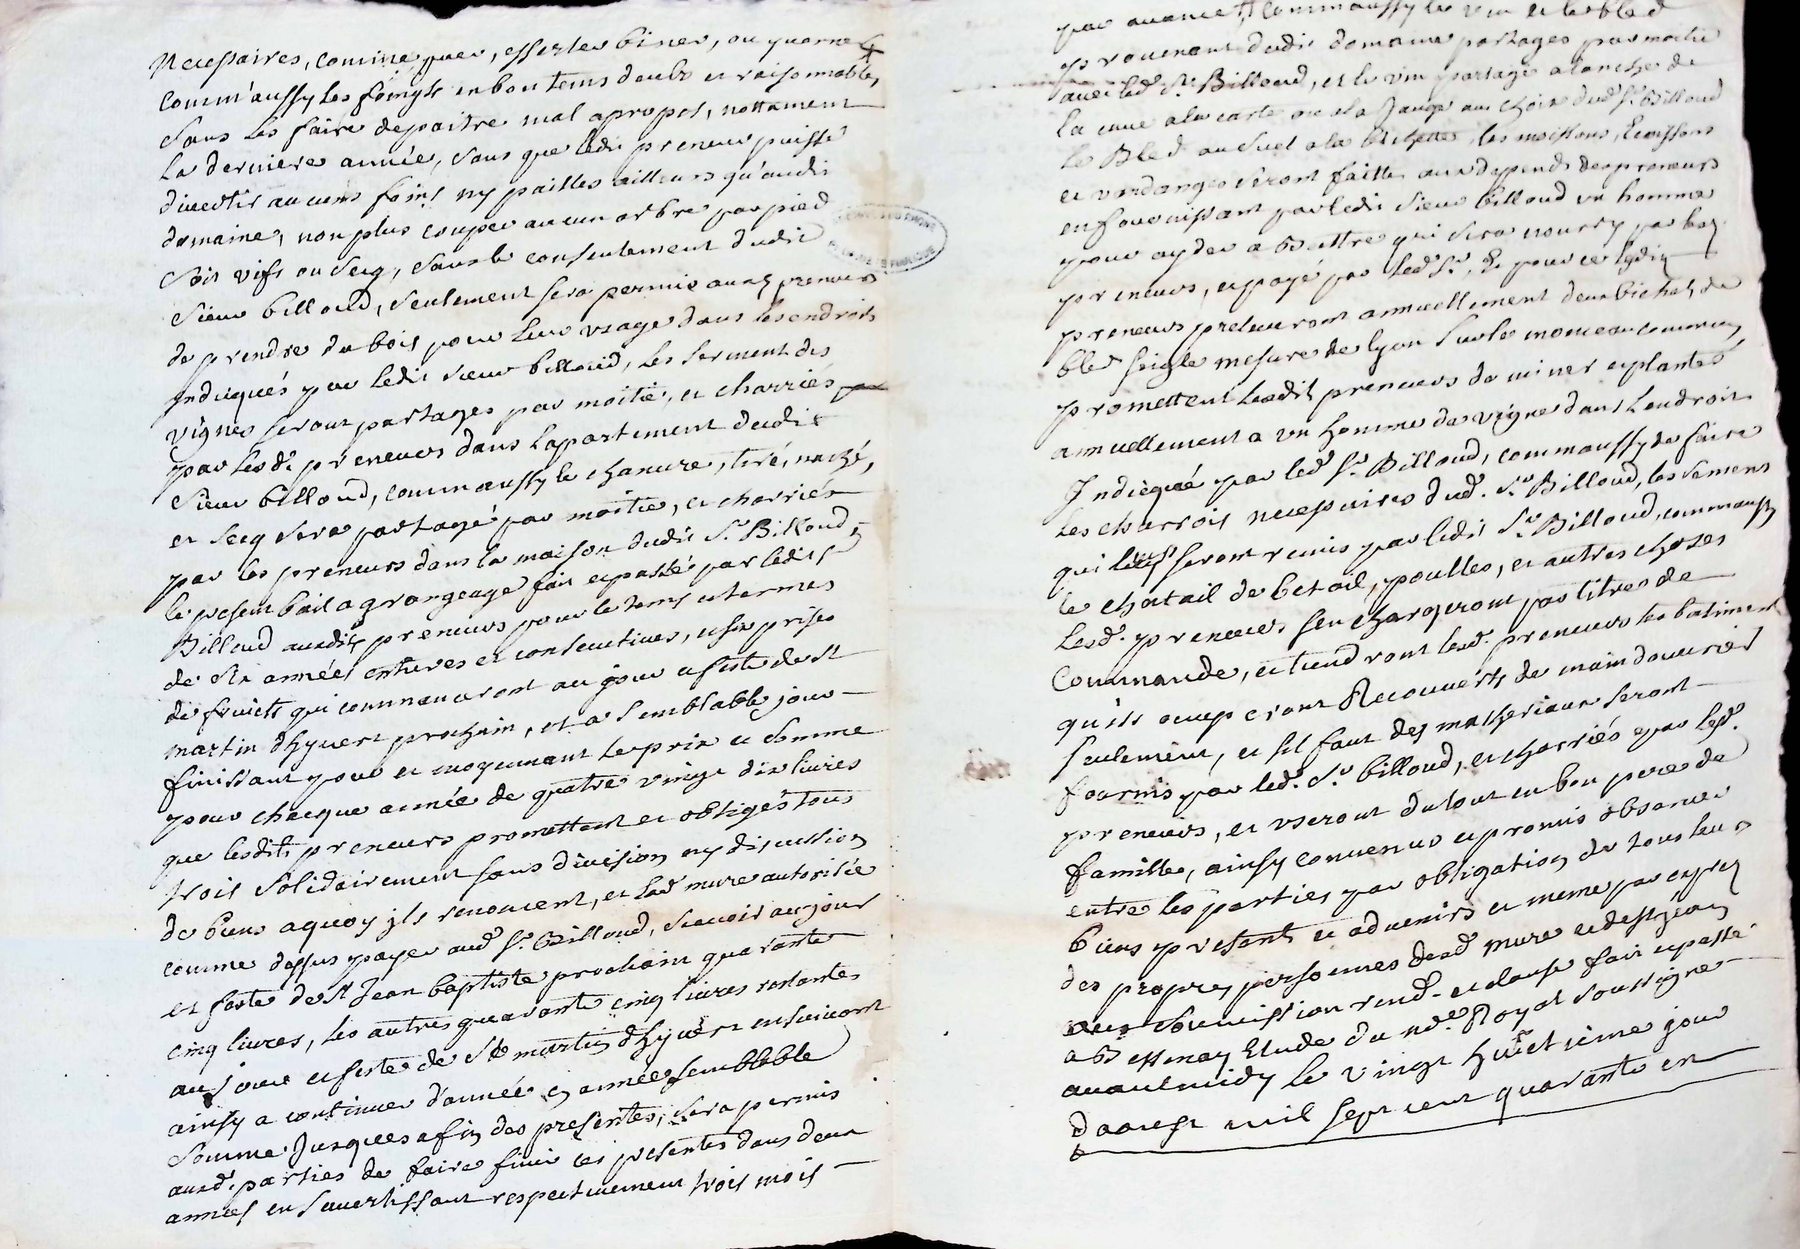 Necessaires, comme puer, esserber biner, ou quarner
comm'aussy les foingts en bon tems deub et raisonnable,
sans les faire depaitre mal apropos, nottament
la derniere année, sans que ledit preneur puisse
divertir aucuns foins ny pailles ailleurs qu'audit
domaine, non plus couper aucun arbre par pied
soit vifs ou secq, sans le consentement dudit
sieur billoud, seulement sera permis auxd preneurs
de prendre du bois pour leur usage dans les endroits
indiqués par ledit sieur billoud, les serment des
vignes seront partages par moitié, et charriés
par lesd. preneurs dans lapartement dudit
sieur billoud, comm'aussy le chanvre, tiré, naizé,
et secq sera partagé par moitié, et charriés
par les preneurs dans la maison dudit Sr. Billoud,
le present bail a grangeage fait et passé par ledit Sr
Billoud auxdits preneurs pour le tems et termes
de six années entieres et consecutives, et six prises
de fruicts qui commanceront au jour et feste de st
martin dhyvert prochain, et a semblable jour
finissant pour et moyennant le prix et somme
pour chacque année de quatre vingt dix livres
que lesdits preneurs promettent et obligés tous
trois solidairement sans division ny discussion
de biens aquoy ils renoncent, et lad mure autorisée
comme dessus payer aud. Sr. Billoud, scavoir au jour
et feste de st Jean baptiste prochain quarante
cinq livres, les autres quarante cinq livres restantes
au jour et feste de St martin dhyvert ensuivant
ainsy a continuer d'année en année semblable
somme jusques a fin des presentes, sera permis
auxd. parties de faire finir ces presentes dans deux
années en s'avertissant respectivement trois mois
par avance comm'aussy le vin et le bled
provenant dudit domaine partages par moitié
avec led. Sr. Billoud, et le vin partagé a lanche de
la cuve a la carte ou a la Jauge au choix dud. Sr. Billoud
le Bled au suel a la bichette, les moissons,
et vandanges seront faittes aux depends des preneurs
en fournissant par ledit sieur billoud un homme
pour ayder a Battre qui sera nourry par les
preneurs, et payé par led. Sr. & pour ce lesdits
preneurs preleveront annuellement deux bichets de
bled seigle mesure de lyon sur le monceau commun,
promettent lesdits preneurs de miner et planter
annuellement a un homme de vigne dans l'endroit
Indicqué par led. Sr. Billoud, comm'aussy de faire
les charrois necessaires dud. Sr. Billoud, les semens
qui leurs seront remis par ledit Sr. Billoud, comm'aussy
le chatail de betail, poulles, et autres choses
lesd. preneurs sen chargeront par titre de
Commande, et tiendront lesd. preneurs les batiment
qu'ils occuperont Recouverts de main douvrier
seulement, et sil faut des matheriaux seront
fournis par led. Sr. billoud, et charriés par lesd.
preneurs, et useront du tout en bon pere de
famille, ainsy convenus et promis observer
entre les parties par obligation de tous leurs
biens presents et advenirs et meme par exprez
des propres personnes desd mure et destjean
avec soumission renond. et clause fait et passé
a Bessenay Etude du nore. Royal soussigné
avant midy le vingt huictieme jour
daoust mil sept cent quarante un